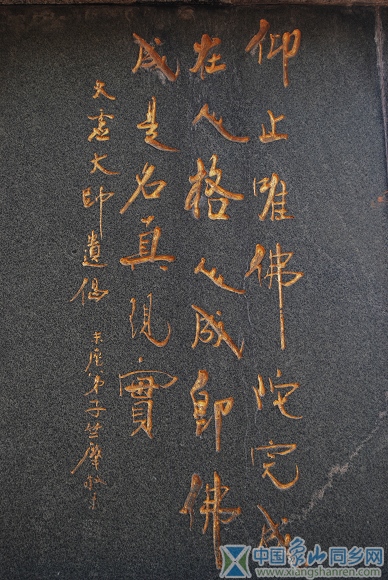 仰止唯佛陀完成
在人格人成即佛
成是名真現實
太虛大師遺偈
弟子
中国象山同乡网
www.xiangshanren.com